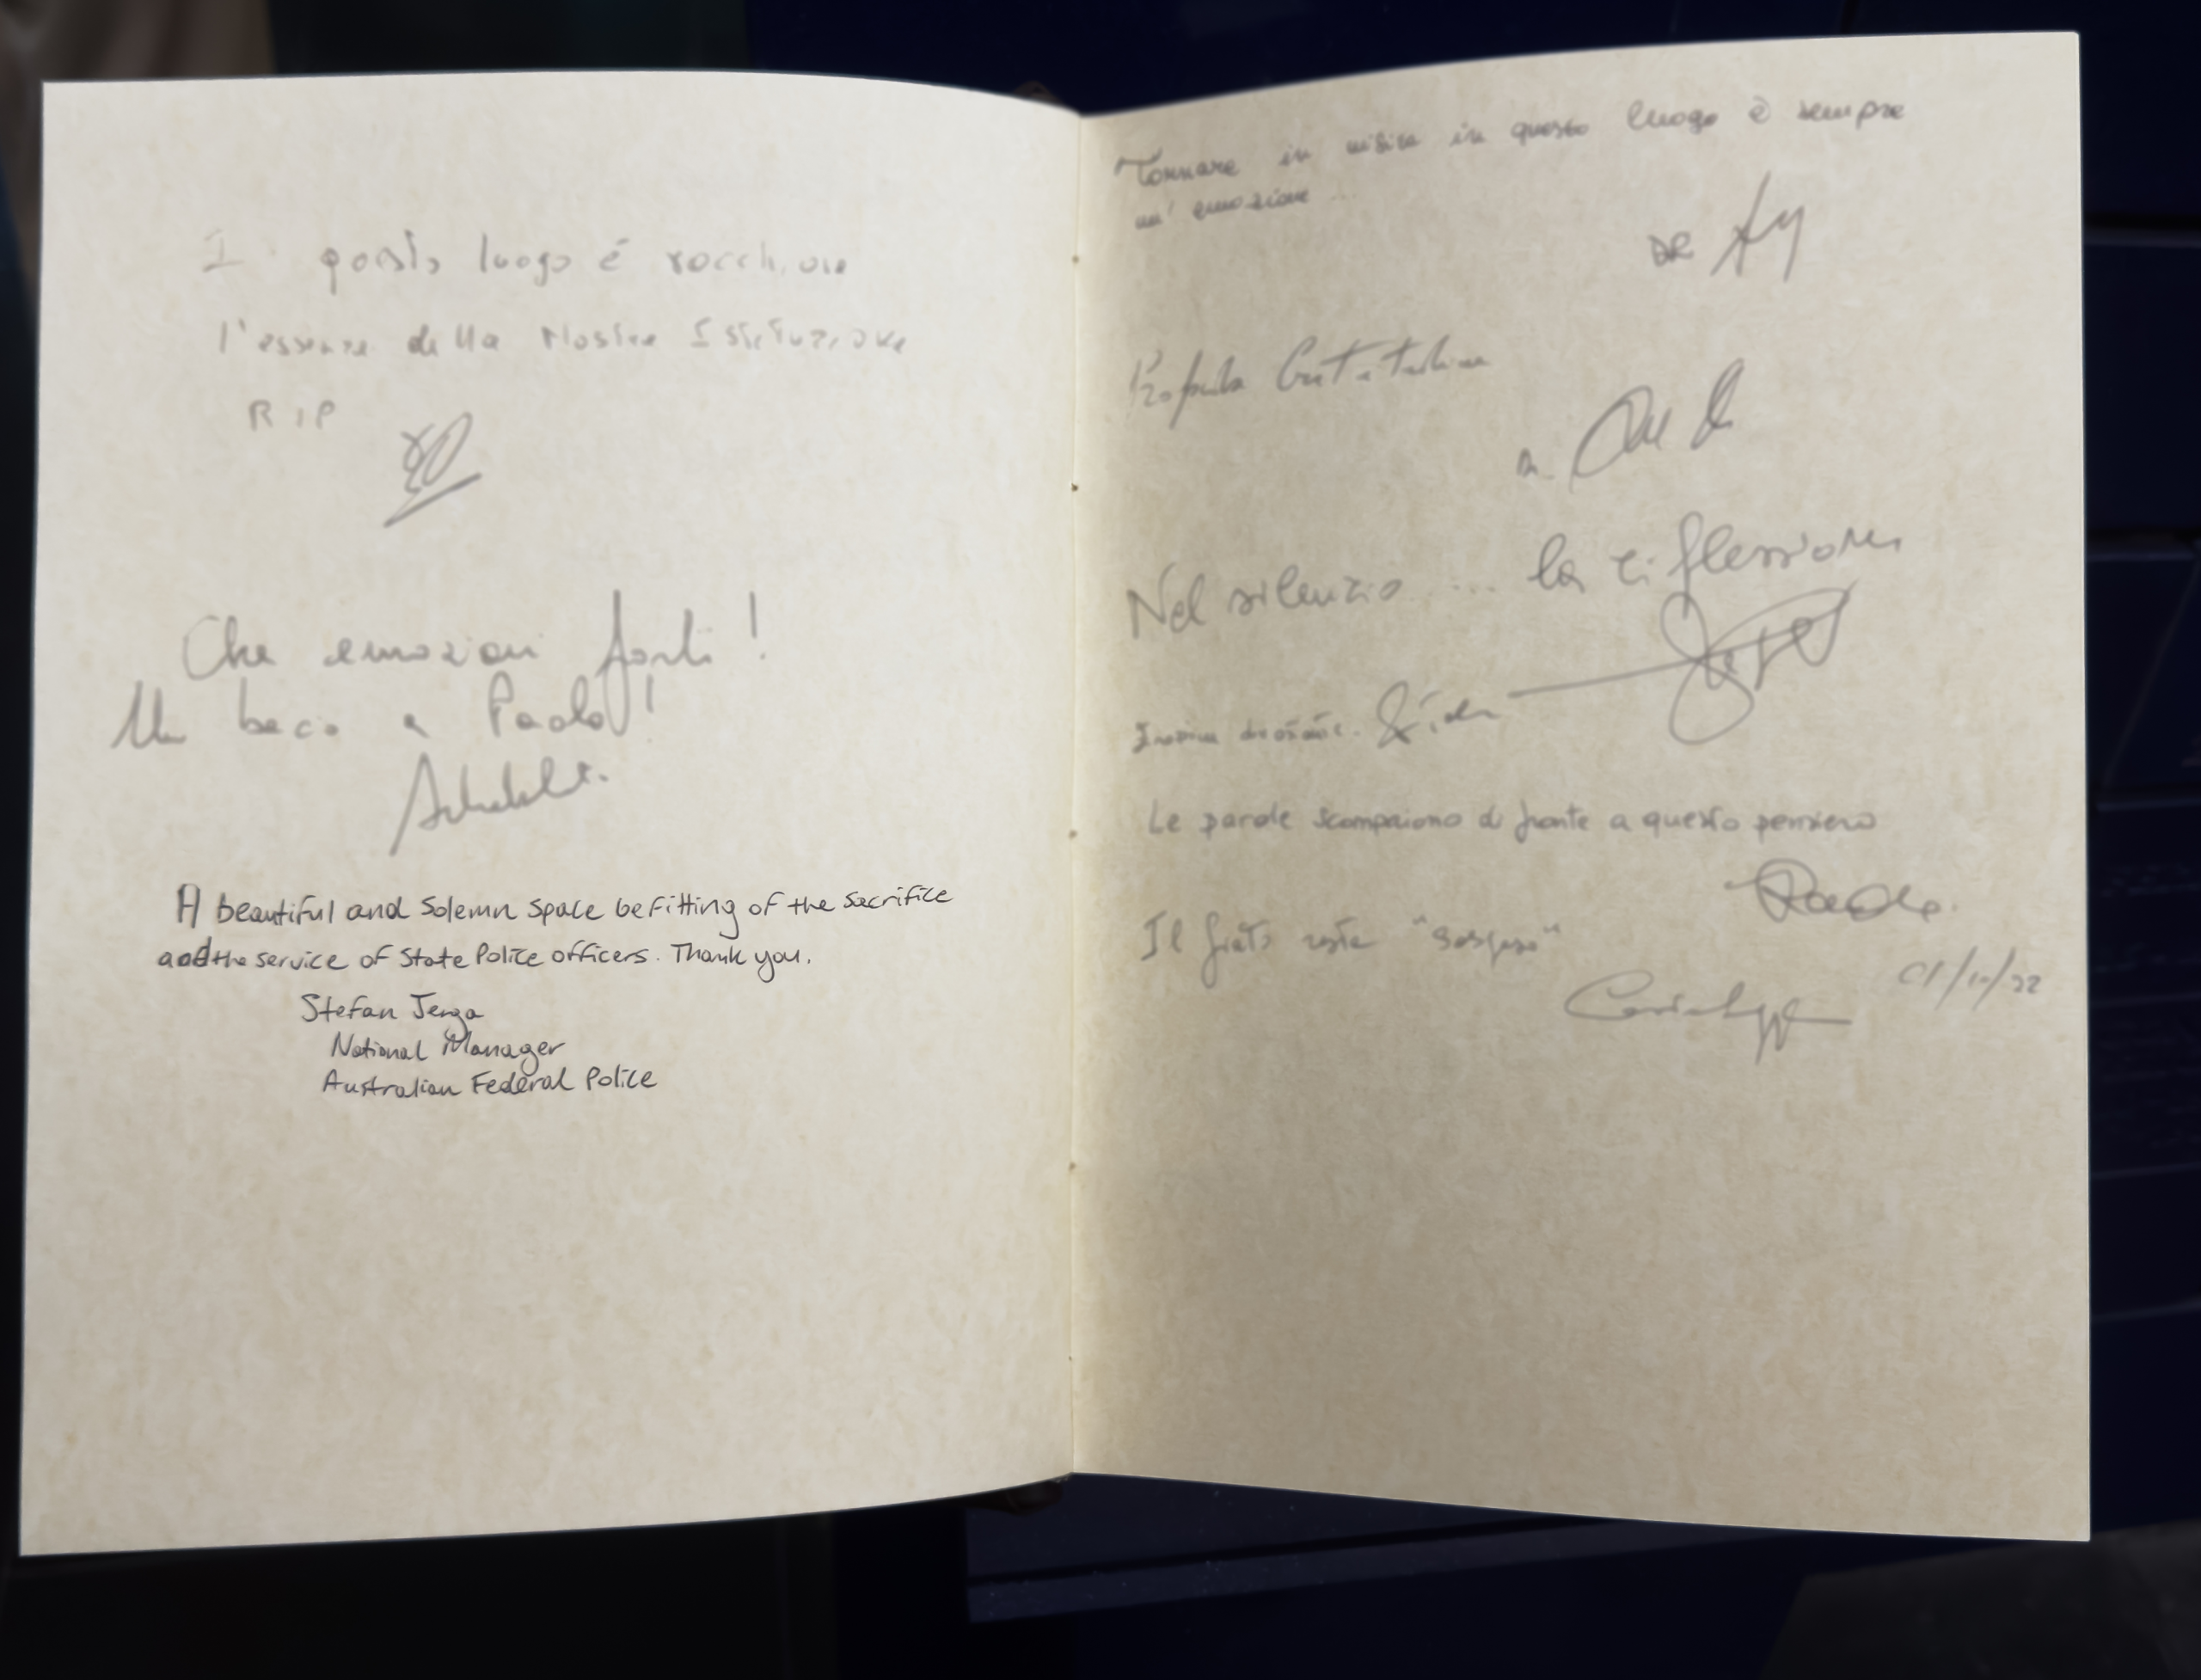 questo luogo é racchiusa
l'essenza della Nostra Istituzione
RIP
Che emozioni forti!
Un bacio a Paolo!
A beautiful and solemn space befitting of the sacrifice
and the service of State Police officers. Thank you.
Stefan Jerga
National Manager
Australian Federal Police
Tornare in visita in questo luogo è sempre
un' emozione ...
DR
Profonda
Nel silenzio ... la riflessione
Le parole scompaiono di fronte a questo pensiero
Il fiato resta "sospeso"
01/10/22